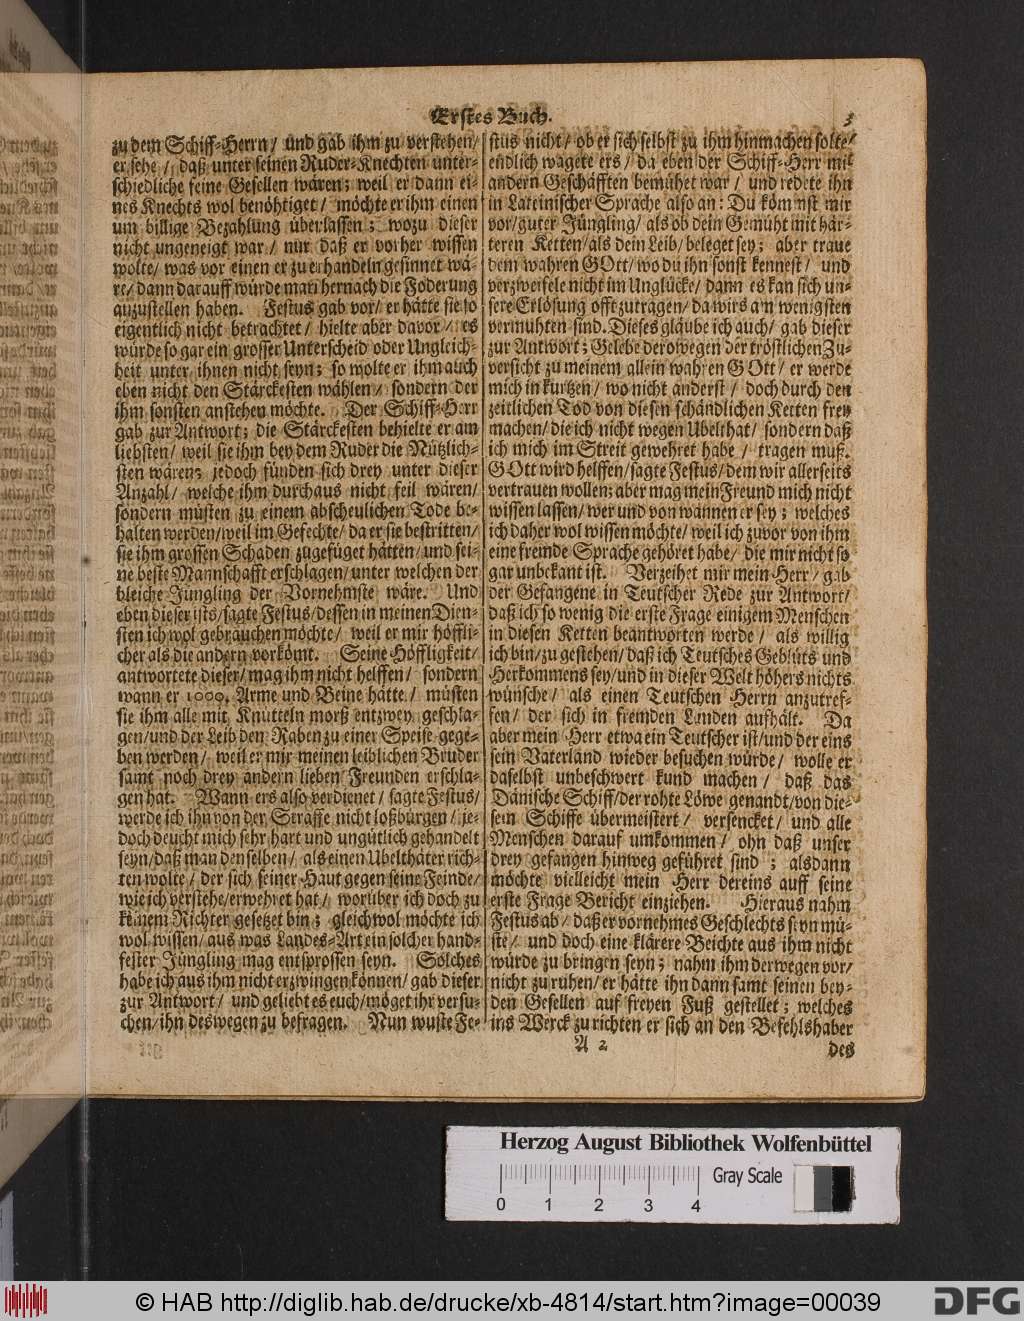 Erstes Buch. 3
zu dem Schiff-Herrn/ und gab ihm zu verstehen/
er sehe / daß unter seinen Ruder-Knechten unter-
schiedliche feine Gesellen wären; weil er dann ei-
nes Knechts wol benöhtiget / möchte er ihm einen
um billige Bezahlung überlassen; wozu dieser
nicht ungeneigt war / nur daß er vorher wissen
wolte/ was vor einen er zu erhandeln gesinnet wä-
re/ dann darauff würde man hernach die Foderung
anzustellen haben. Festus gab vor/ er hätte sie so
eigentlich nicht betrachtet / hielte aber davor / es
würde so gar ein grosser Unterscheid oder Ungleich-
heit unter ihnen nicht seyn; so wolte er ihm auch
eben nicht den Stärckesten wählen / sondern der
ihm sonsten anstehen möchte. Der Schiff-Herr
gab zur Antwort; die Stärckesten behielte er am
liebsten/ weil sie ihm bey dem Ruder die Nützlich-
sten wären; jedoch fünden sich drey unter dieser
Anzahl/ welche ihm durchaus nicht feil wären/
sondern müsten zu einem abscheulichen Tode be-
halten werden/ weil im Gefechte/ da er sie bestritten/
sie ihm grossen Schaden zugefüget hätten/ und sei-
ne beste Mannschafft erschlagen/ unter welchen der
bleiche Jüngling der Vornehmste wäre. Und
eben dieser ists/ sagte Festus/ dessen in meinen Dien-
sten ich wol gebrauchen möchte/ weil er mir höffli-
cher als die andern vorkömt. Seine Höffligkeit/
antwortete dieser/ mag ihm nicht helffen/ sondern
wann er 1000. Arme und Beine hätte/ müsten
sie ihm alle mit Knütteln morß entzwey geschla-
gen/ und der Leib den Raben zu einer Speise gege-
ben werden/ weil er mir meinen leiblichen Bruder
samt noch drey andern lieben Freunden erschla-
gen hat. Wann ers also verdienet/ sagte Festus/
werde ich ihn von der Straffe nicht loßbürgen/ je-
doch deucht mich sehr hart und ungütlich gehandelt
seyn/ daß man denselben/ als einen Ubelthäter rich-
ten wolte/ der sich seiner Haut gegen seine Feinde/
wie ich verstehe/ erwehret hat/ worüber ich doch zu
keinem Richter gesetzet bin; gleichwol möchte ich
wol wissen/ aus was Landes-Art ein solcher hand-
fester Jüngling mag entsprossen seyn. Solches
habe ich aus ihm nicht erzwingen können/ gab dieser
zur Antwort/ und geliebt es euch/ möget ihr versu-
chen/ ihn deswegen zu befragen. Nun wuste Fe-
stus nicht/ ob er sich selbst zu ihm hinmachen solte/
endlich wagete ers/ da eben der Schiff-Herr mit
andern Geschäfften bemühet war/ und redete ihn
in Lateinischer Sprache also an: Du kömmst mir
vor/ guter Jüngling/ als ob dein Gemüht mit här-
teren Ketten/ als dein Leib/ beleget sey; aber traue
dem wahren GOtt/ wo du ihn sonst kennest/ und
verzweifele nicht im Unglücke/ dann es kan sich un-
sere Erlösung offt zutragen/ da wirs am wenigsten
vermuhten sind. Dieses gläube ich auch/ gab dieser
zur Antwort; Gelebe derowegen der tröstlichen Zu-
versicht zu meinem allein wahren GOtt/ er werde
mich in kurtzen/ wo nicht anderst/ doch durch den
zeitlichen Tod von diesen schändlichen Ketten frey
machen/ die ich nicht wegen Ubelthat/ sondern daß
ich mich im Streit gewehret habe/ tragen muß.
GOtt wird helffen/ sagte Festus/ dem wir allerseits
vertrauen wollen; aber mag mein Freund mich nicht
wissen lassen/ wer und von wannen er sey; welches
ich daher wol wissen möchte/ weil ich zuvor von ihm
eine fremde Sprache gehöret habe/ die mir nicht so
gar unbekant ist. Verzeihet mir mein Herr/ gab
der Gefangene in Teutscher Rede zur Antwort/
daß ich so wenig die erste Frage einigem Menschen
in diesen Ketten beantworten werde/ als willig
ich bin/ zu gestehen/ daß ich Teutsches Geblüts und
Herkommens sey/ und in dieser Welt höhers nichts
wünsche/ als einen Teutschen Herrn anzutref-
fen/ der sich in fremden Landen aufhält. Da
aber mein Herr etwa ein Teutscher ist/ und der eins
sein Vaterland wieder besuchen würde/ wolle er
daselbst unbeschwert kund machen/ daß das
Dänische Schiff/ der rohte Löwe genandt/ von die-
sem Schiffe übermeistert/ versencket/ und alle
Menschen darauf umkommen/ ohn daß unser
drey gefangen hinweg geführet sind; alsdann
möchte vielleicht mein Herr dereins auff seine
erste Frage Bericht einziehen. Hieraus nahm
Festus ab/ daß er vornehmes Geschlechts seyn mü-
ste/ und doch eine klärere Beichte aus ihm nicht
würde zu bringen seyn; nahm ihm derwegen vor/
nicht zu ruhen/ er hätte ihn dann samt seinen bey-
den Gesellen auf freyen Fuß gestellet; welches
ins Werck zu richten er sich an den Befehlshaber
A 2 des
Herzog August Bibliothek Wolfenbüttel
Gray Scale
0 1 2 3 4
© HAB http://diglib.hab.de/drucke/xb-4814/start.htm?image=00039
DFG